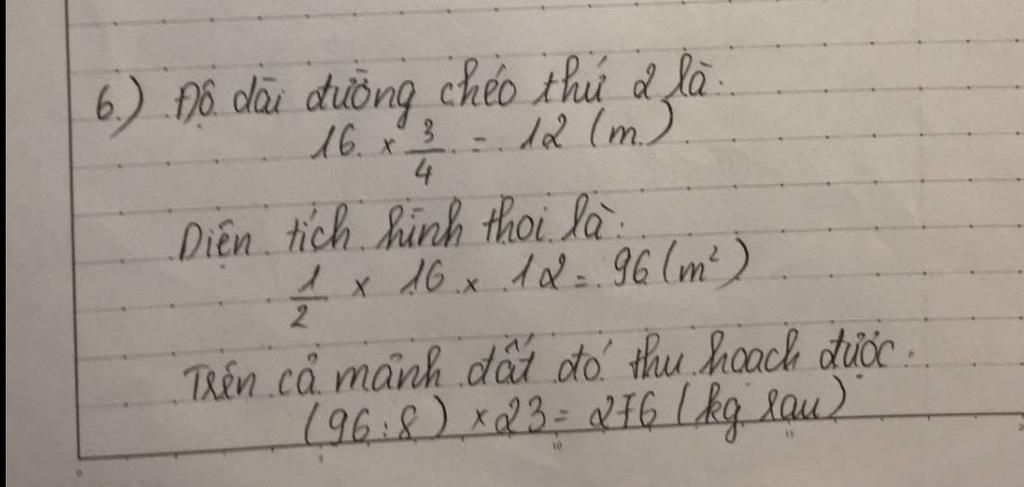 6.) Độ dài đường chéo thứ 2 là:
16 x 3/4 = 12 (m)
Diện tích hình thoi là:
1/2 x 16 x 12 = 96 (m²)
Trên cả mảnh đất đó thu hoạch được:
(96 : 8) x 23 = 276 (kg rau)